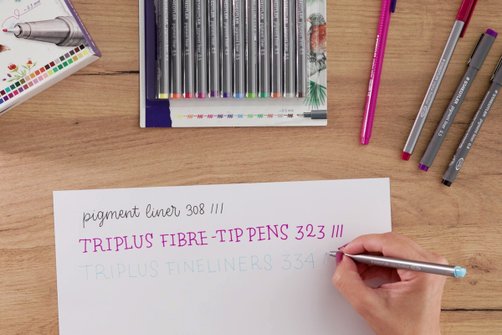 pigment liner 308 ///
TRIPLUS FIBRE-TIP PENS 323 ///
TRIPLUS FINELINERS 334 /
STAEDTLER